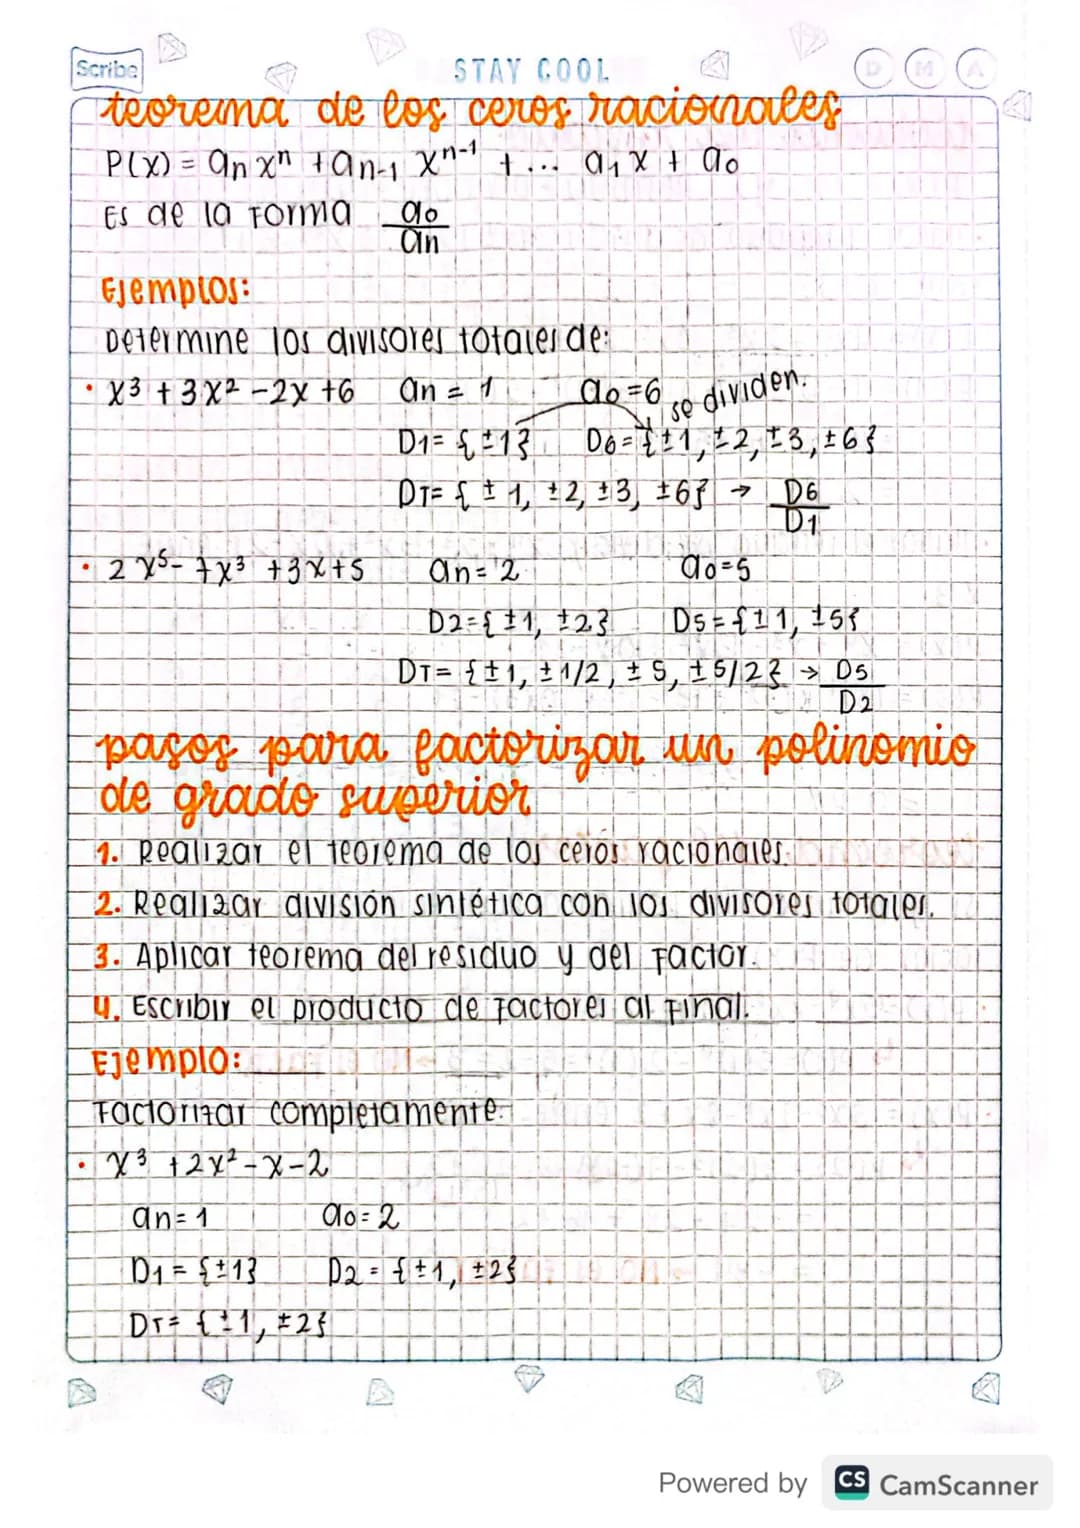 Scribe
STAY COOL
D M A
teorema de los ceros racionales
P(x) = an xⁿ + an-1 xⁿ⁻¹ + ... a1 x + a0
Es de la forma a0/an
Ejemplos:
Determine los divisores totales de:
• x³ + 3x² - 2x + 6 an = 1 a0 = 6 se dividen.
D1 = {±1} D6 = {±1, ±2, ±3, ±6}
DT = {±1, ±2, ±3, ±6} → D6/D1
• 2x⁵ - 7x³ + 3x + 5 an = 2 a0 = 5
D2 = {±1, ±2} D5 = {±1, ±5}
DT = {±1, ±1/2, ±5, ±5/2} → D5/D2
pasos para factorizar un polinomio
de grado superior
1. Realizar el teorema de los ceros racionales.
2. Realizar división sintética con los divisores totales.
3. Aplicar teorema del residuo y del Factor.
4. Escribir el producto de Factores al Final.
Ejemplo:
Factorizar completamente:
• x³ + 2x² - x - 2
an = 1 a0 = 2
D1 = {±1} D2 = {±1, ±2}
DT = {±1, ±2}
Powered by CS CamScanner